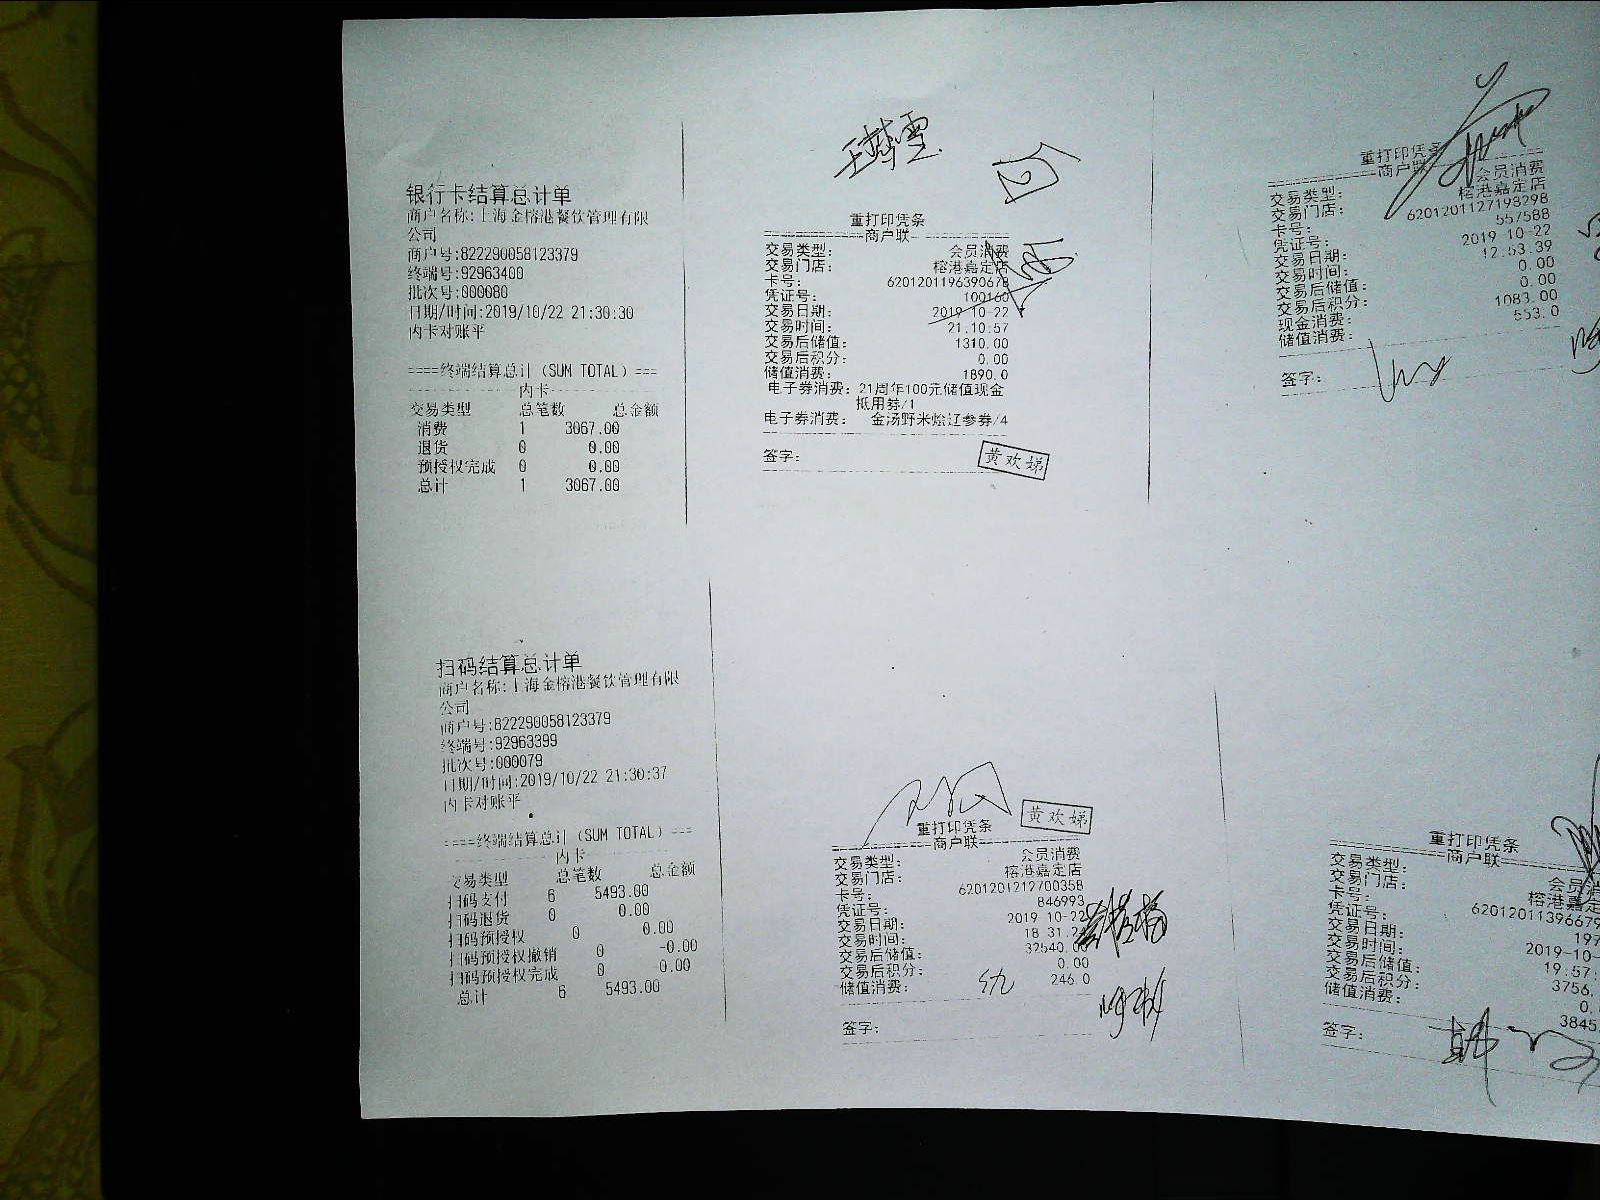 银行卡结算总计单
商户名称:上海金榕港餐饮管理有限
公司
商户号:822290058123379
终端号:92963400
批次号:000080
日期/时间:2019/10/22 21:30:30
内卡对账平
====终端结算总计(SUM TOTAL)===
内卡
交易类型 总笔数 总金额
消费 1 3067.00
退货 0 0.00
预授权完成 0 0.00
总计 1 3067.00
重打印凭条
商户联
交易类型: 会员消费
交易门店: 榕港嘉定店
卡号: 6201201196390678
凭证号: 100160
交易日期: 2019-10-22
交易时间: 21.10:57
交易后储值: 1310.00
交易后积分: 0.00
储值消费: 1890.0
电子券消费: 21周年100元储值现金
抵用券/1
电子券消费: 金汤野米烩辽参券/4
签字:
黄欢娣
重打印凭条
商户联
交易类型: 会员消费
交易门店: 榕港嘉定店
卡号: 6201201127198298
凭证号: 557588
交易日期: 2019 10-22
交易时间: 12.53.39
交易后储值: 0.00
交易后积分: 0.00
现金消费: 1083.00
储值消费: 553.0
签字:
扫码结算总计单
商户名称:上海金榕港餐饮管理有限
公司
商户号:822290058123379
终端号:92963399
批次号:000079
日期/时间:2019/10/22 21:30:37
内卡对账平
====终端结算总计(SUM TOTAL)===
内卡
交易类型 总笔数 总金额
扫码支付 6 5493.00
扫码退货 0 0.00
扫码预授权 0 0.00
扫码预授权撤销 0 -0.00
扫码预授权完成 0 0.00
总计 6 5493.00
黄欢娣
重打印凭条
商户联
交易类型: 会员消费
交易门店: 榕港嘉定店
卡号: 6201201212700358
凭证号: 846993
交易日期: 2019 10-22
交易时间: 18 31.2
交易后储值: 32540.0
交易后积分: 0.00
储值消费: 246.0
签字:
重打印凭条
商户联
交易类型: 会员消
交易门店: 榕港嘉定
卡号: 62012011396679
凭证号: 197
交易日期: 2019-10-
交易时间: 19:57:
交易后储值: 3756.
交易后积分: 0.
储值消费: 3845.
签字: